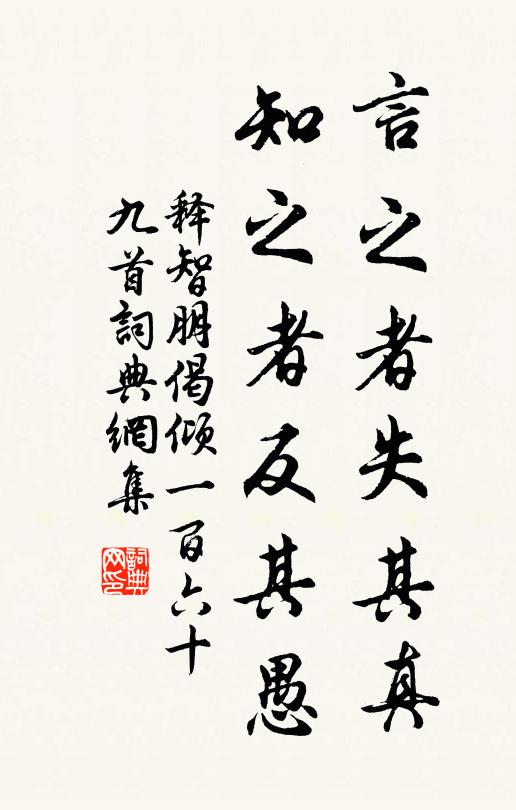 言之者失其真
知之者反其愚
释智朋偈倾一百六十
九首詞典網集
詞典
网印